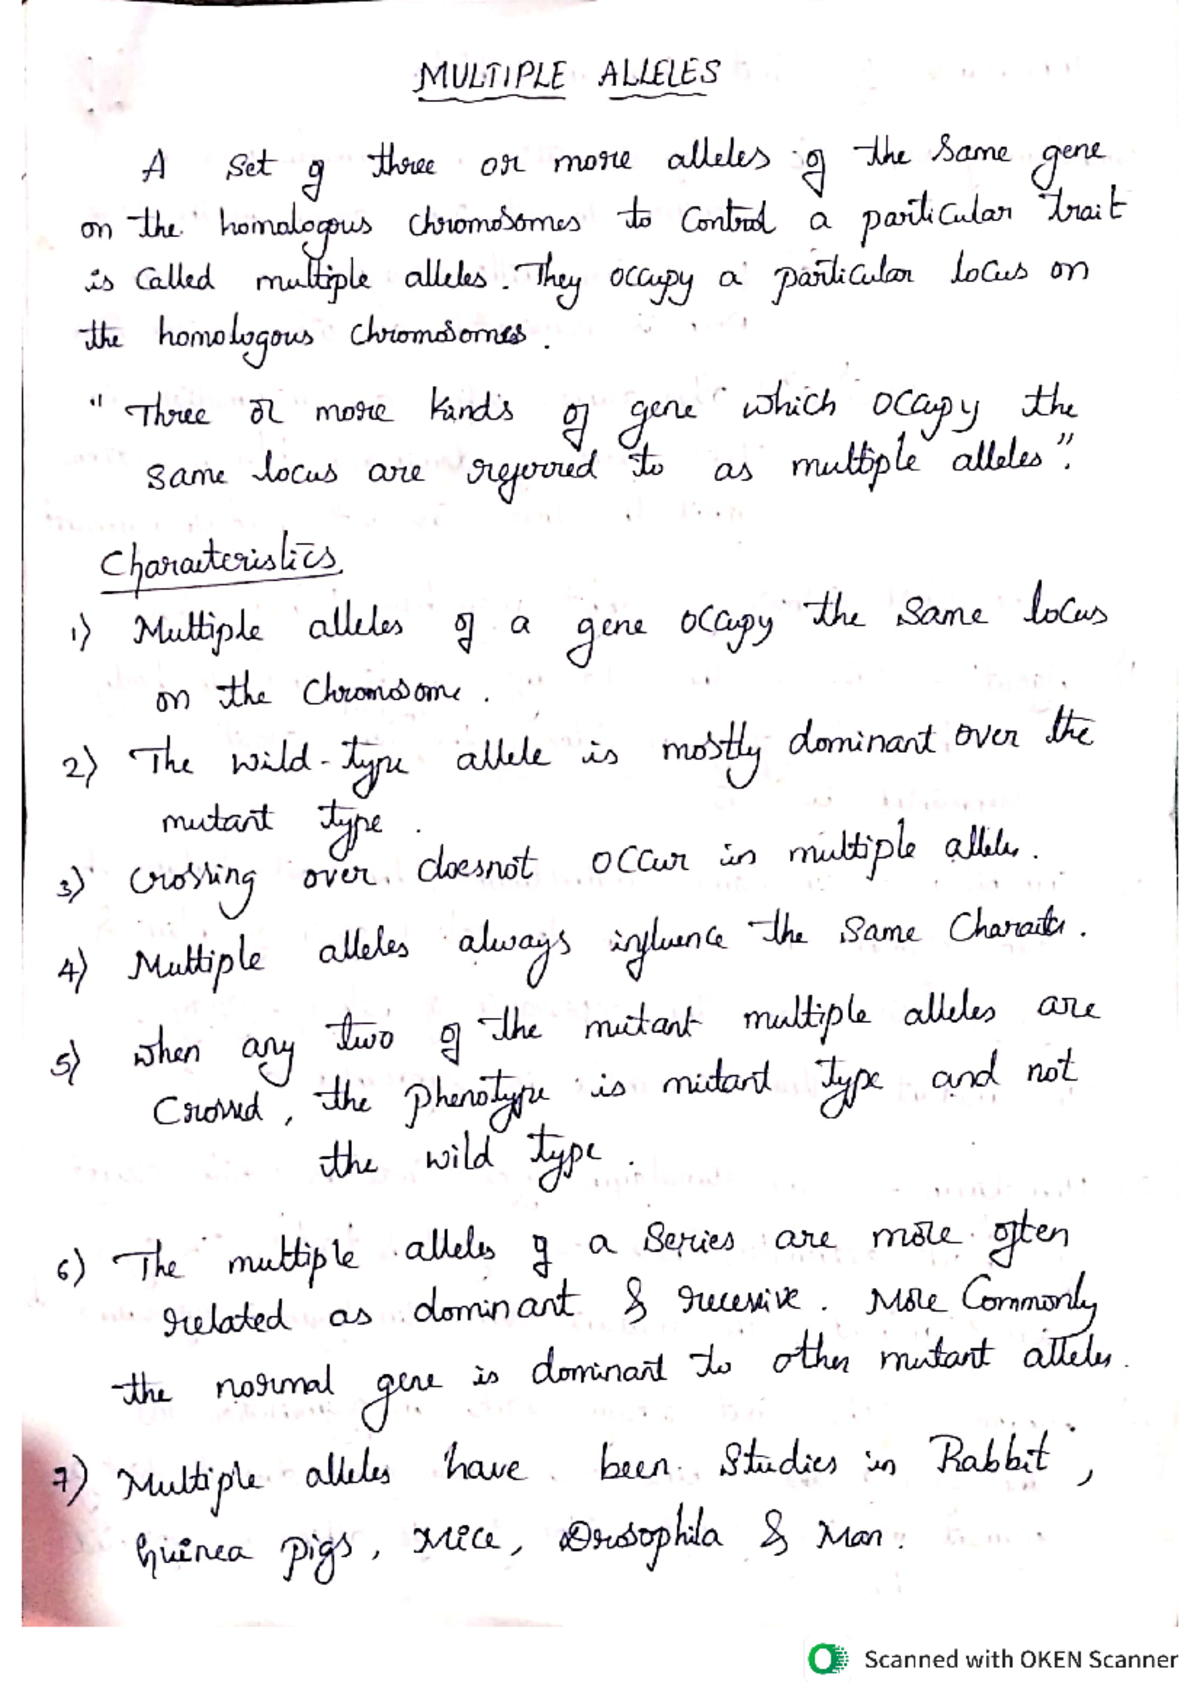 MULTIPLE ALLELES
A Set of three or more alleles of the Same gene
on the homologous chromosomes to Control a particular trait
is Called multiple alleles. They occupy a particular locus on
the homologous chromosomes.
" Three or more kinds of gene which occupy the
same locus are referred to as multiple alleles".
Characteristics
1) Multiple alleles of a gene occupy the Same locus
on the Chromosome.
2) The wild-type allele is mostly dominant over the
mutant type.
3) Crossing over doesnot occur in multiple alleles.
4) Multiple alleles always influence the Same Character.
5) when any two of the mutant multiple alleles are
Crossed, the phenotype is mutant type and not
the wild type.
6) The multiple alleles of a Series are more often
related as dominant & recessive. More Commonly
the normal gene is dominant to other mutant alleles.
7) Multiple alleles have been Studies in Rabbit,
Guinea pigs, Mice, Drosophila & Man.
Scanned with OKEN Scanner